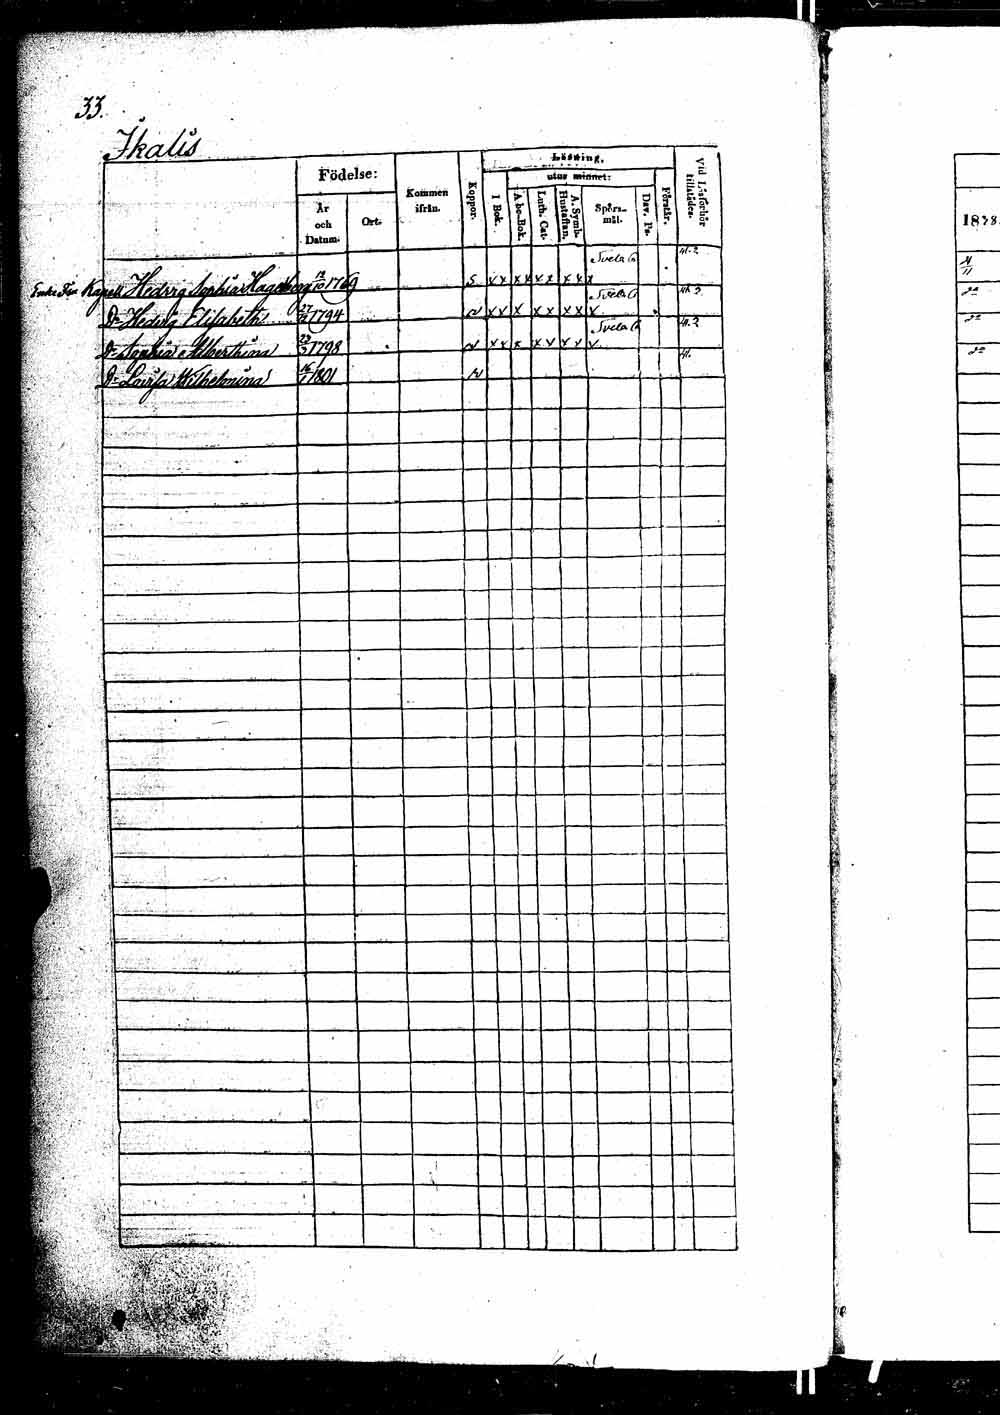 33.
Ikalis
Födelse:
År och Datum.
Ort.
Kommen ifrån.
Koppor.
Läsning,
utur minnet:
I Bok.
Abc-Bok.
Luth. Cat.
A. Symb. Hustaflan.
Spörsmål.
Dav. Ps.
Förstår.
Vid Läsförhör tillstädes.
Enke Fru Kapell. Hedvig Sophia Hageberg 12/10 1769 S x x x x x x x x x Svela 41. 2
Dr Hedvig Elisabeth 1794 N x x x x x x x x Svela 41. 3
Dr Sophia Albertina 1798 N x x x x x x x x Svela 41. 2
Dr Lovisa Wilhelmina 16/1 1801 N 41.
1838